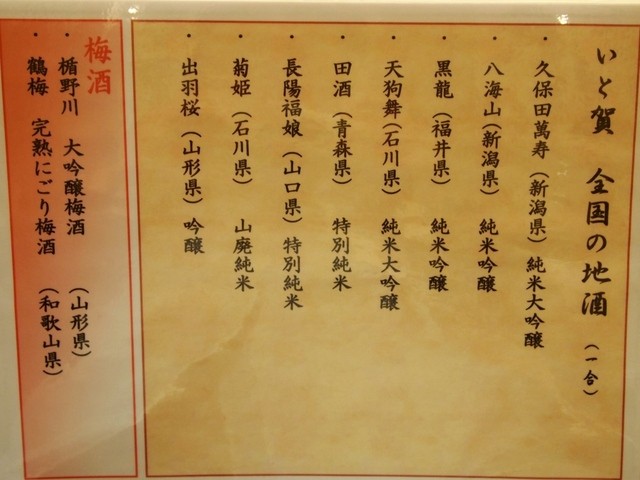 いと賀 全国の地酒 (一合)
・久保田萬寿(新潟県) 純米大吟醸
・八海山(新潟県) 純米吟醸
・黒龍(福井県) 純米吟醸
・天狗舞(石川県) 純米大吟醸
・田酒(青森県) 特別純米
・長陽福娘(山口県) 特別純米
・菊姫(石川県) 山廃純米
・出羽桜(山形県) 吟醸
梅酒
・楯野川 大吟醸梅酒 (山形県)
・鶴梅 完熟にごり梅酒 (和歌山県)